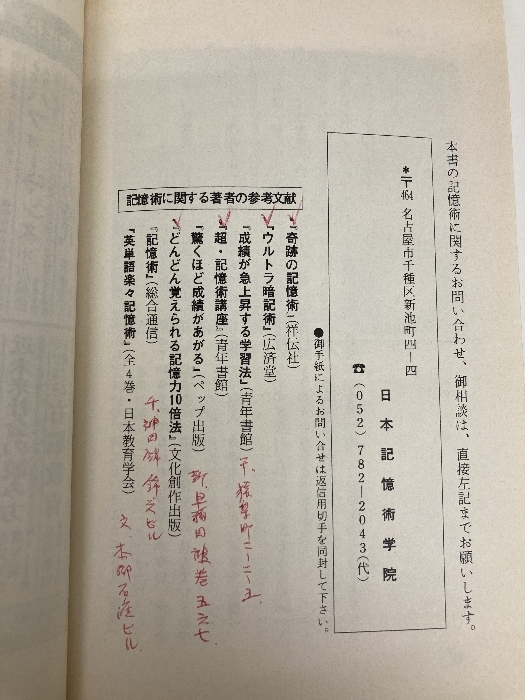 本書の記憶術に関するお問い合わせ、御相談は、直接左記までお願いします。
＊〒464 名古屋市千種区新池町四―四
日本記憶術学院
☎（052）782―2043（代）
●御手紙によるお問い合せは返信用切手を同封して下さい。
記憶術に関する著者の参考文献
『奇跡の記憶術』（祥伝社）
『ウルトラ暗記術』（広済堂）
『成績が急上昇する学習法』（青年書館）
千、猿楽町二―二―五
『超・記憶術講座』（青年書館）
『驚くほど成績があがる』（ペップ出版）
新、早稲田鶴巻 五六七
『どんどん覚えられる記憶力10倍法』（文化創作出版）
『記憶術』（総合通信）
千、神田 ビル
『英単語楽々記憶術』（全4巻・日本教育学会）
文、本郷 ビル